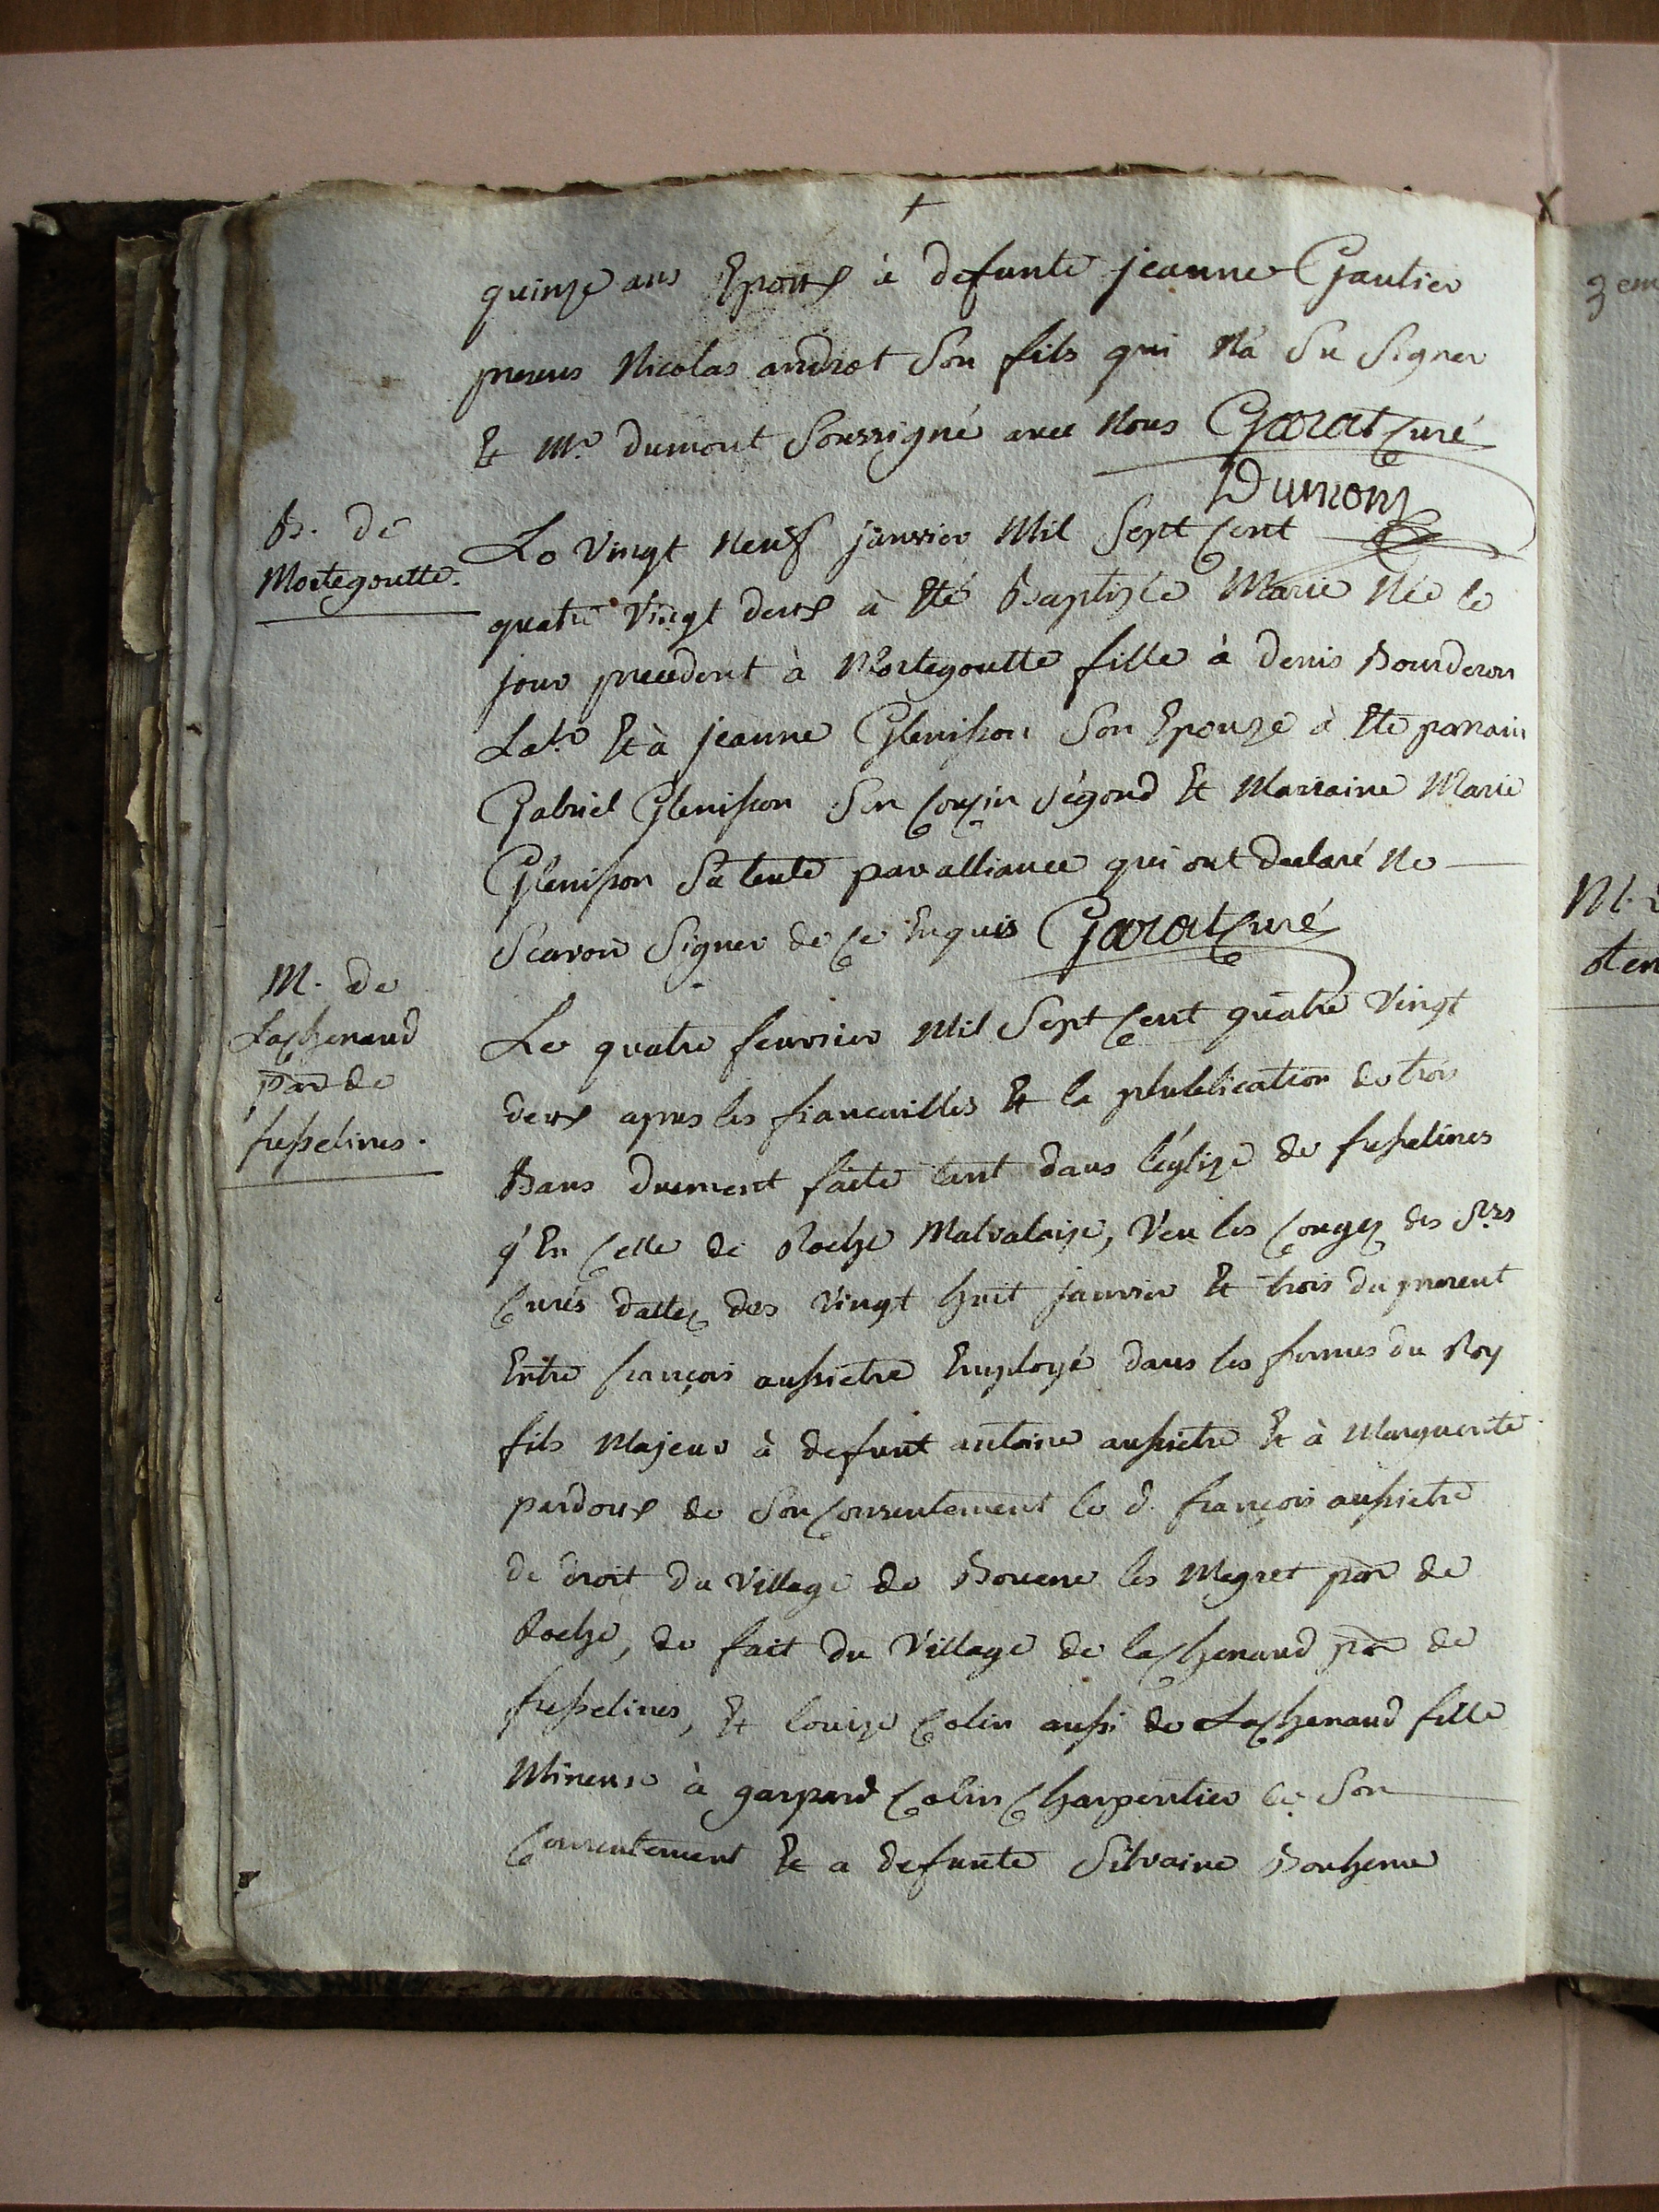 +
quinze ans Epoux à defunte jeanne Gautier
presens Nicolas androt Son fils qui Na Su Signer
Et Mr. dumont Soussigné avec Nous Garat Curé
Dumont
B. de
Mortegoutte.
Le Vingt Neuf janvier Mil Sept Cent
quatre Vingt deux à Eté Baptizée Marie Née le
jour precedent à Mortegoutte fille à denis Bourderon
Labr. Et à jeanne Glenisson Son Epouze à Eté parrain
Gabriel Glenisson Son Couzin Ségond Et Marraine Marie
Glenisson Sa tente par alliance qui ont declaré Ne
Scavoir Signer de Ce Enquis Garat Curé
M. de
LaChenaud
par de
fresselines.
Le quatre fevrier Mil Sept Cent quatre Vingt
deux apres les fiancailles Et la plublication de trois
Bans duement faite tant dans l'églize de fresselines
q'En Celle de Roche Malvalaize, Veu les Congez des Srs
Curés dattez des Vingt huit janvier Et trois du present
Entre françois aussietre Employé dans les fermes du Roy
fils Majeur à defunt antoine aussietre Et à Marguerite
pardoux de Son Consentement le d. françois aussietre
de droit du Village de Bouere les Megret par de
Roche, de fait du Village de laChenaud par de
fresselines, Et louize Colin aussi de LaChenaud fille
Mineure à gaspard Colin Charpentier de Son
Consentement Et a defunte Silvaine Bonheme
3em
M.